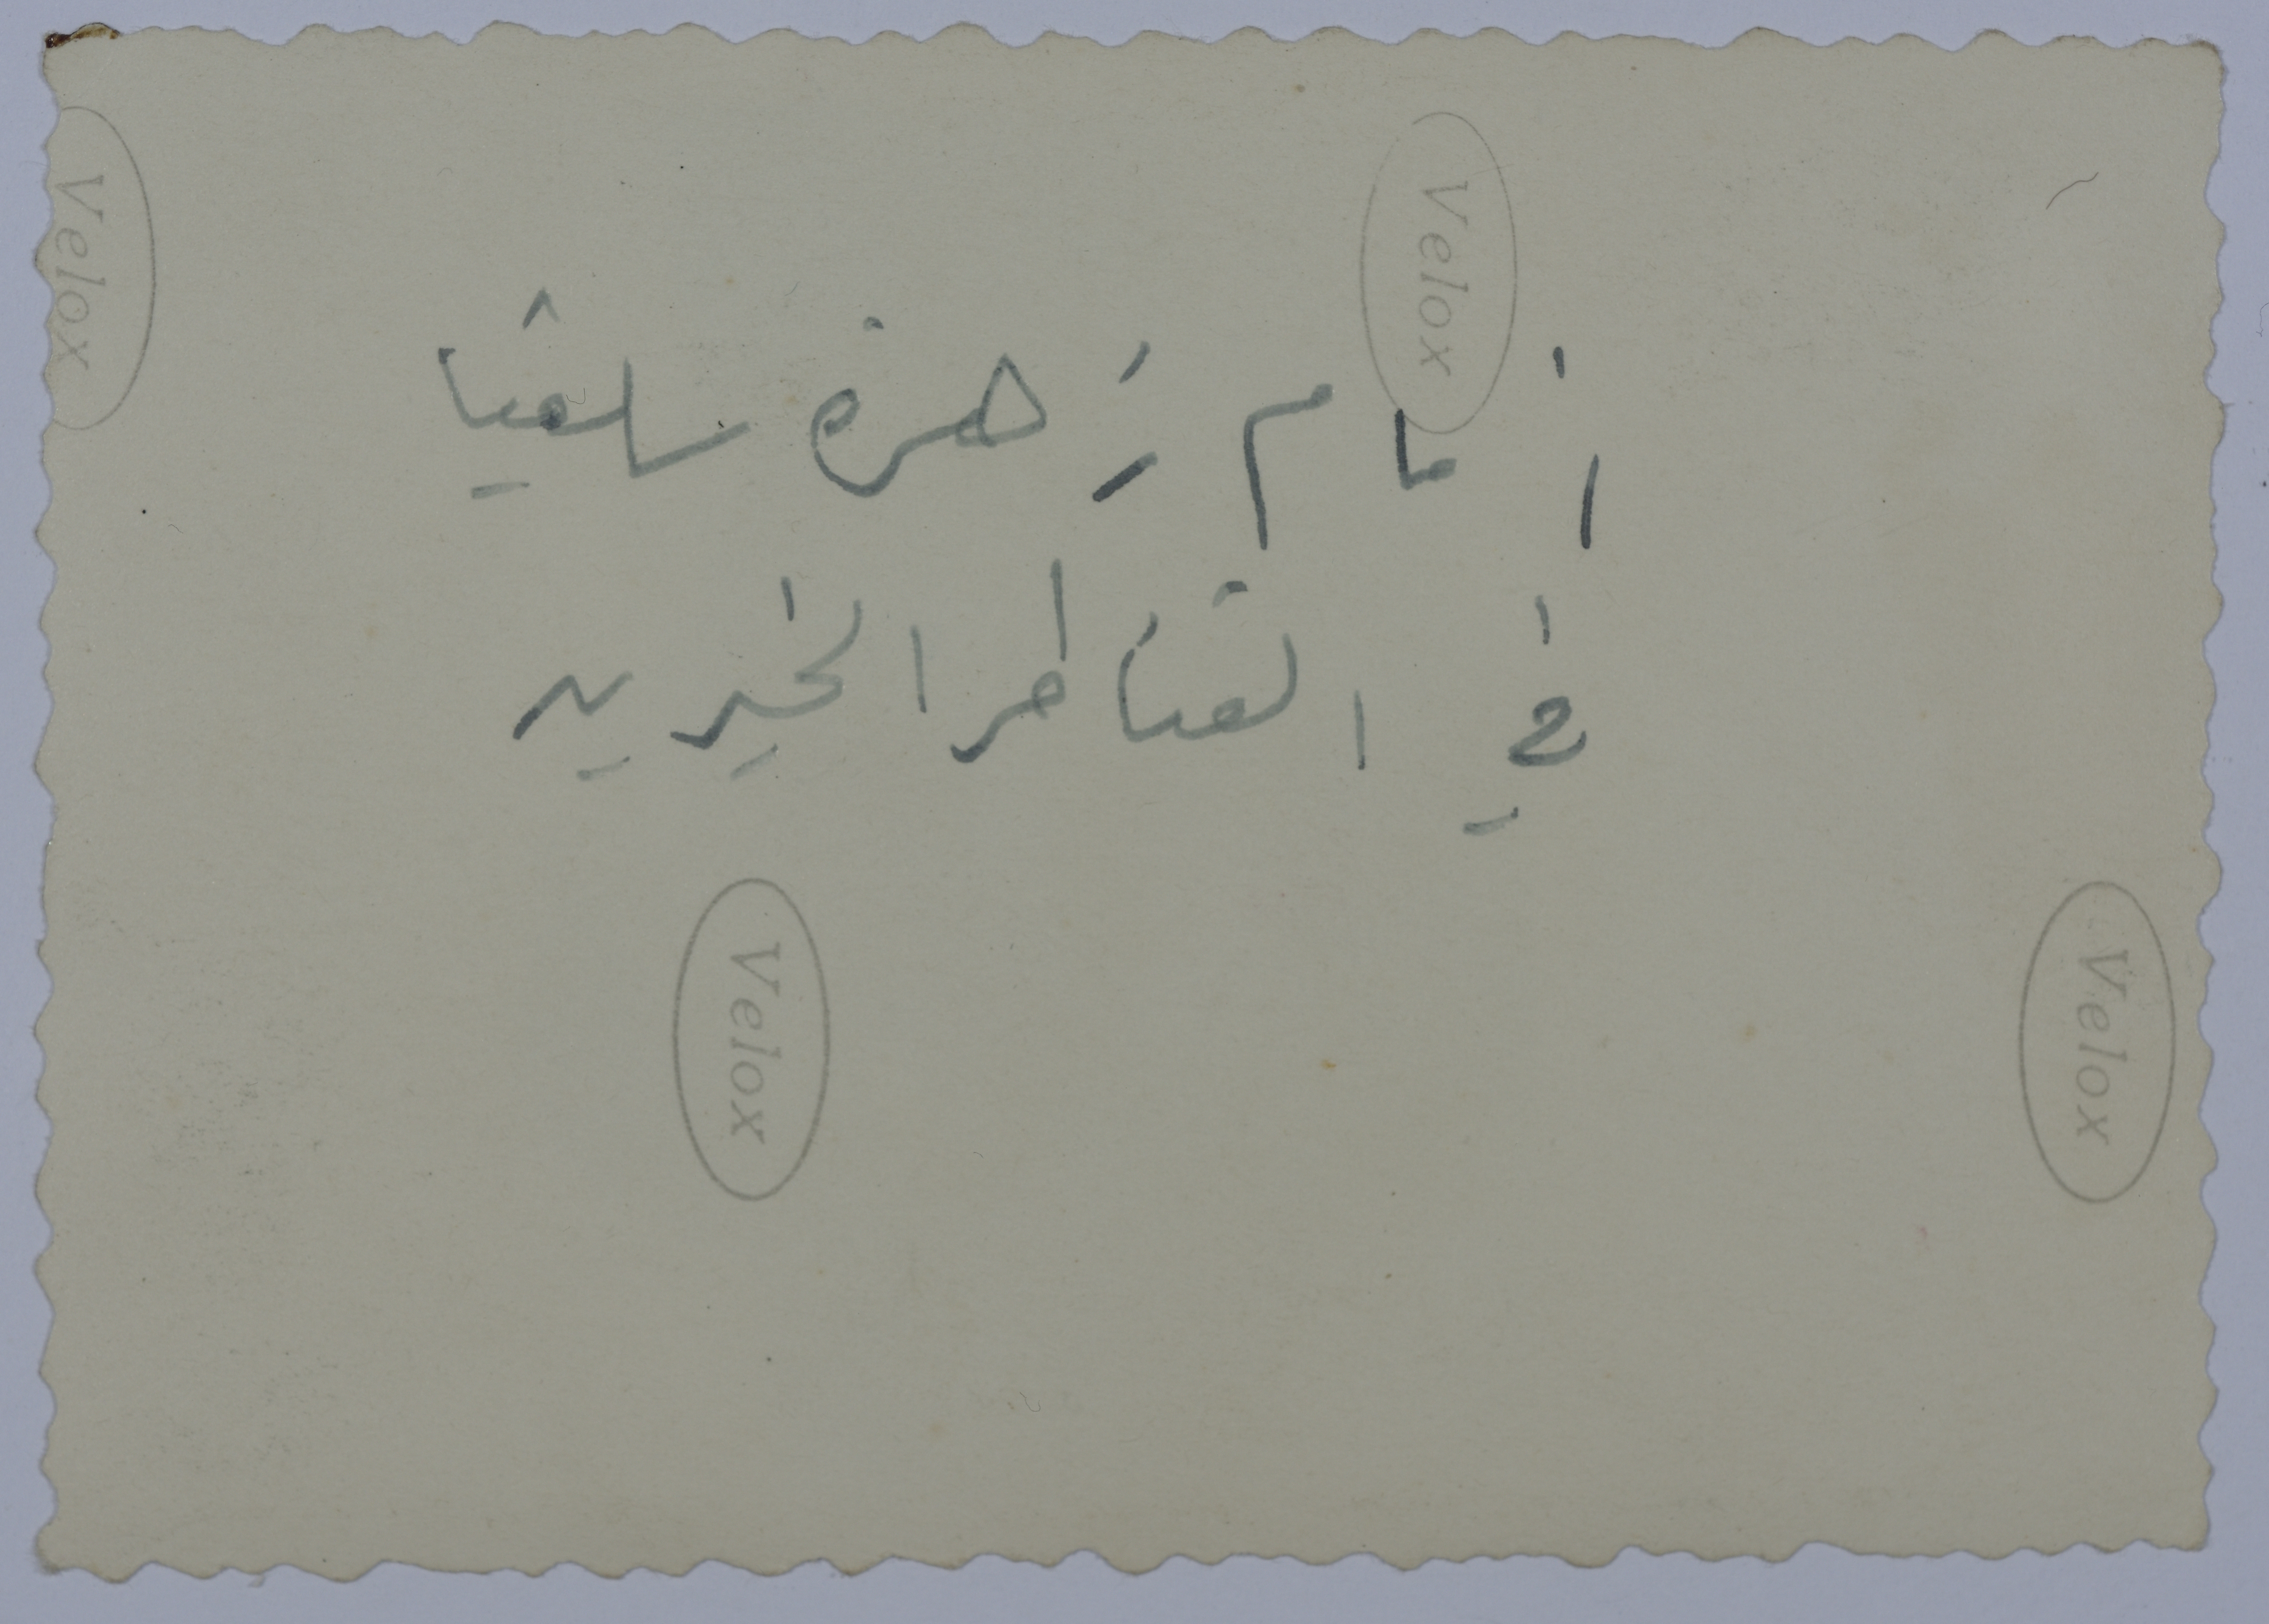 أمام زهرة سلفيا
في القناطر الخيرية
Velox
Velox
Velox
Velox